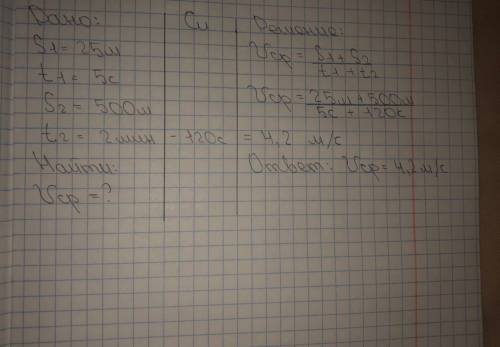 Дано:
S1 = 25м
t1 = 5с
S2 = 500м
t2 = 2мин
Найти:
Vср = ?
Си
- 120с
Решение:
Vср = S1 + S2
t1 + t2
Vср = 25м + 500м
5с + 120с
= 4,2 м/с
Ответ: Vср = 4,2 м/с